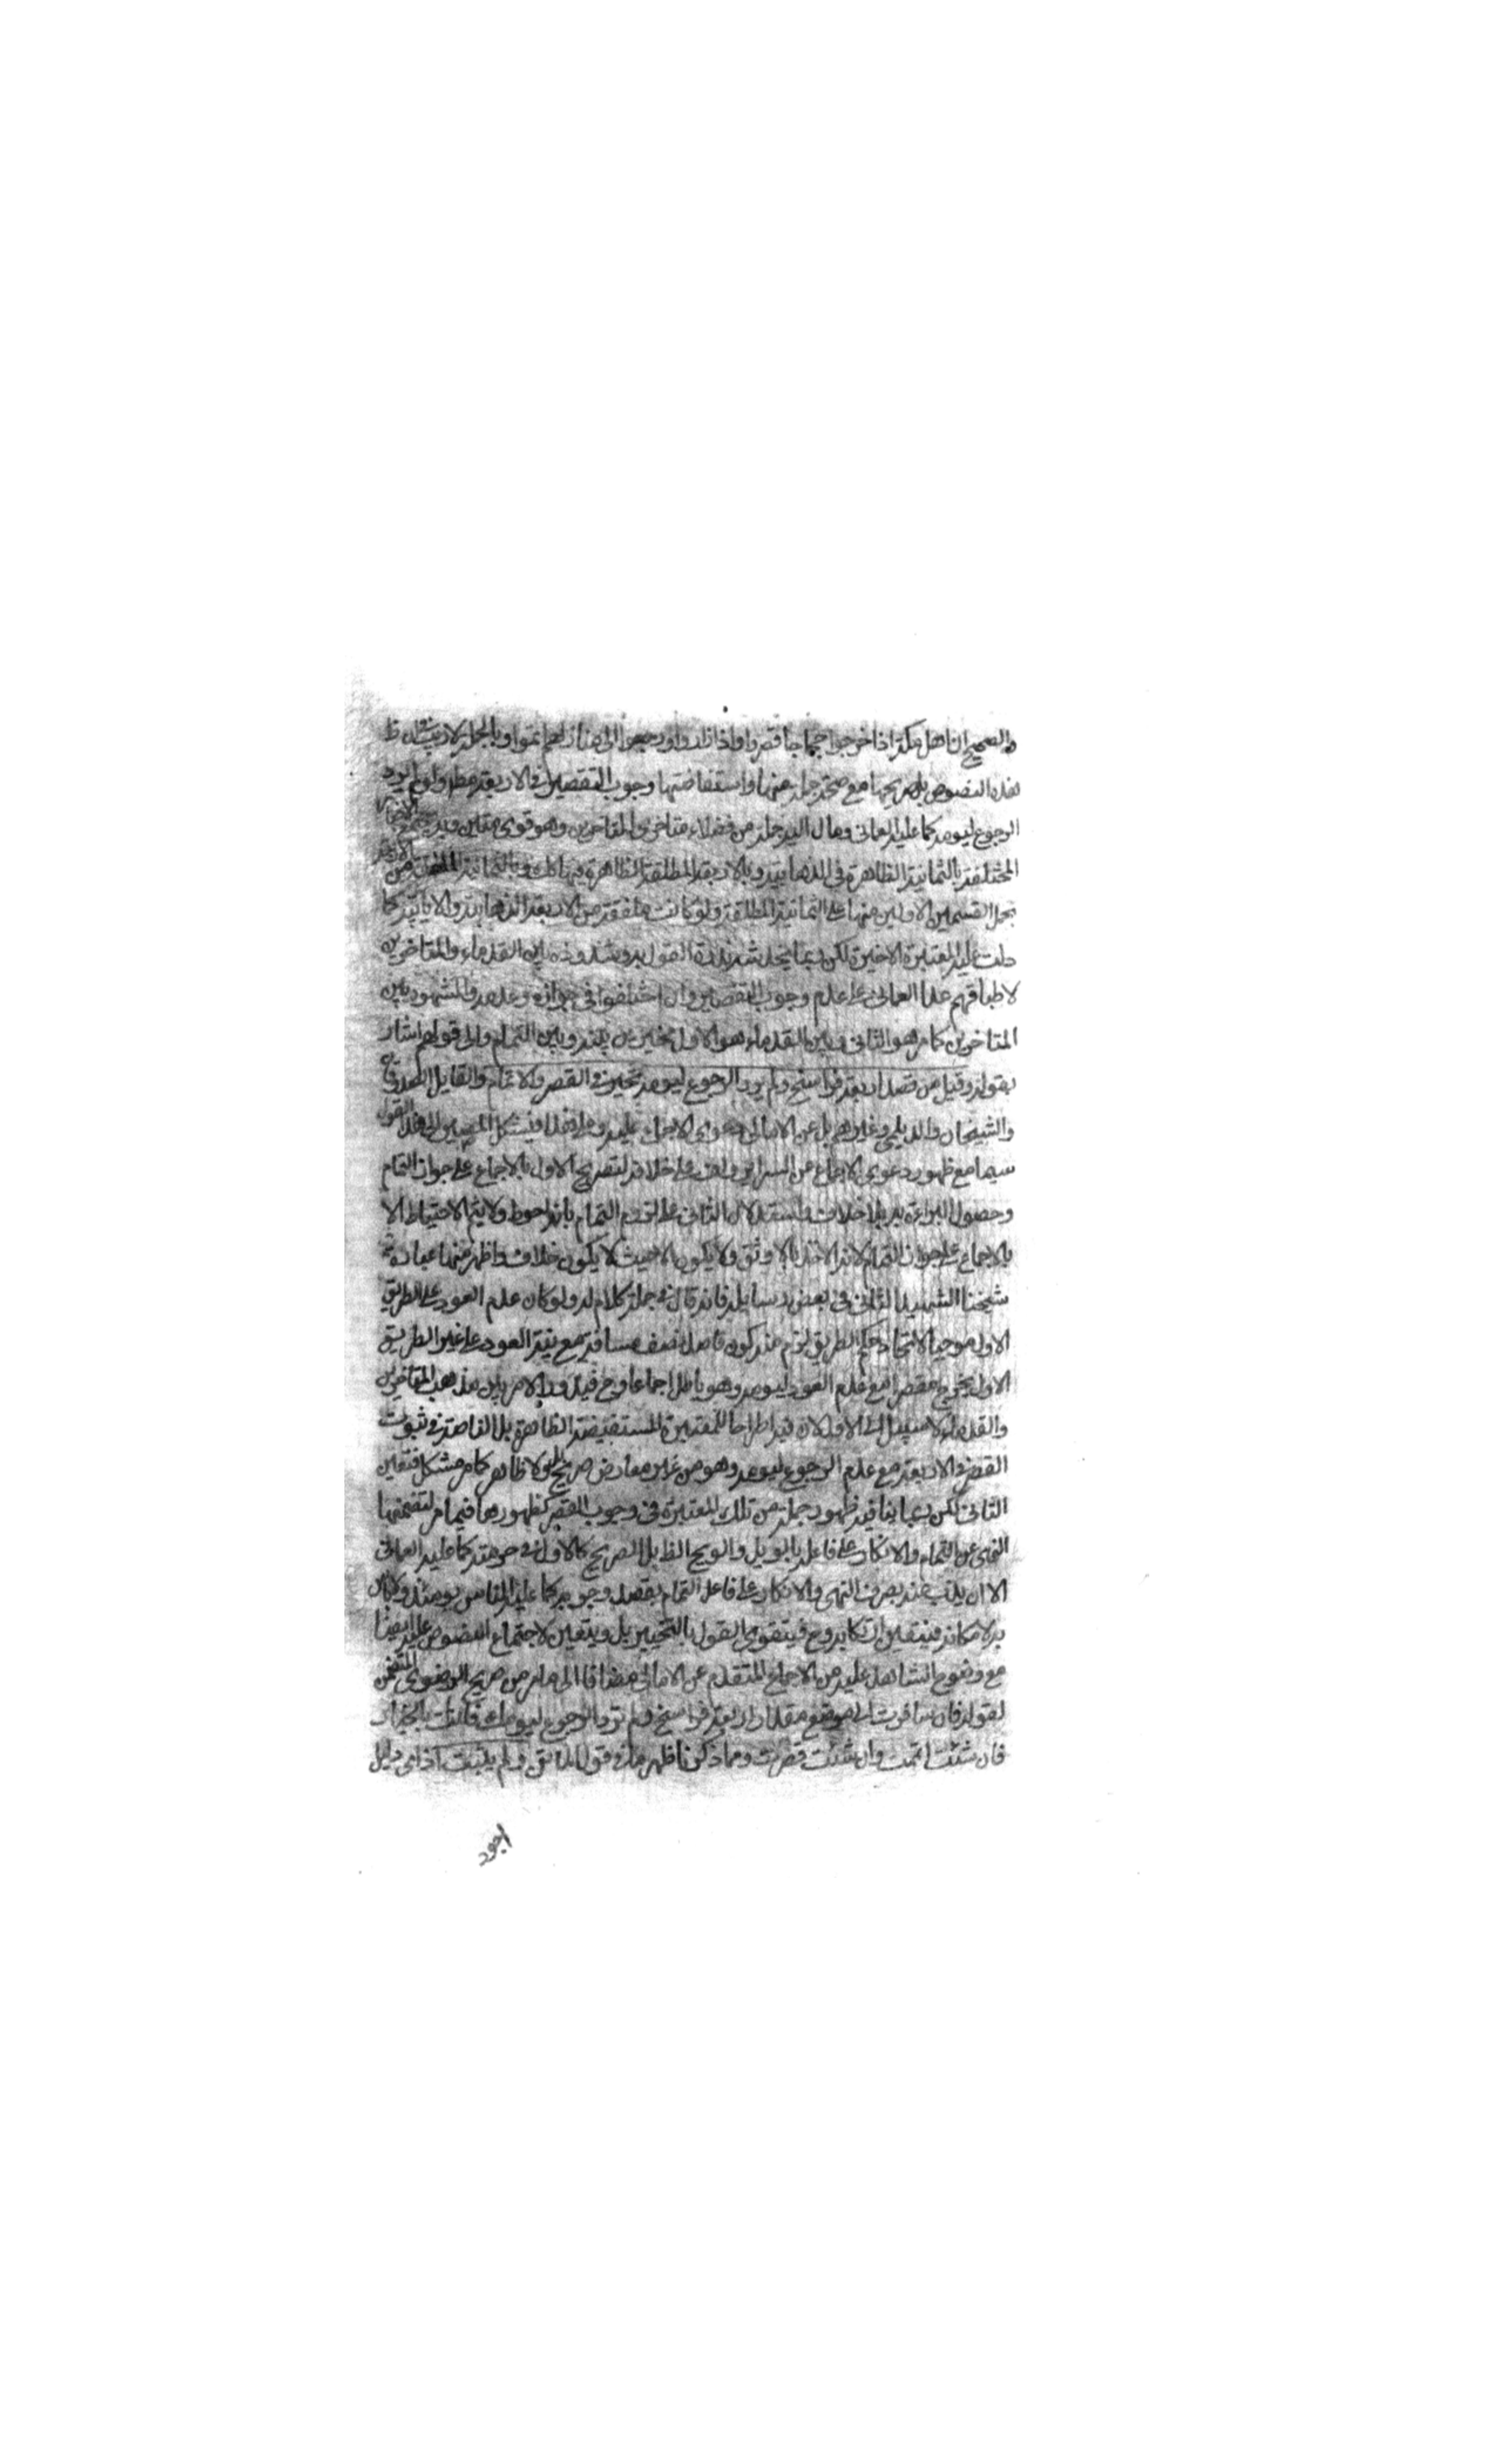 والصحيح ان اهل مكة اذا خرجوا حجاجا قصروا واذا زاروا ورجعوا الى منازلهم اتموا وبالجملة لا ريب في ان ظ
هذه النصوص بل صريحها مع صحة جملة منها واستفاضتها وجوب التقصير في الاربعة مطلقا ولو لم يرد
الرجوع ليومه كما عليه العماني ومال اليه جملة من فضلاء متاخري المتاخرين وهو قوي متين وبه يجتمع الاخبار
المختلفة بالثمانية الظاهرة في الذهابية وبالاربعة المطلقة الظاهرة فيها كك وبالثمانية الملفقة من الاربعتين
بحمل القسمين الاولين منها على الثمانية المطلقة ولو كانت ملفقة من الاربعة الذهابية والايابية كما
دلت عليه المعتبرة الاخيرة لكن ربما يخدشه ندرة القول به وشذوذه بين القدماء والمتاخرين
لاطباقهم عدا العماني على عدم وجوب التقصير وان اختلفوا في جوازه وعدمه والمشهور بين
المتاخرين كما مر هو الثاني وبين القدماء هو الاول مخيرين بينه وبين التمام والى قولهم اشار
بقوله وقيل من قصد اربعة فراسخ ولم يرد الرجوع ليومه تخير في القصر والاتمام والقايل الصدوق
والشيخان والديلمي وغيرهم بل عن الامالي دعوى الاجماع عليه وعلى هذا فيشكل المصير الى هذا القول
سيما مع ظهور دعوى الاجماع من السراير والفن على خلافه لتصريح الاول بالاجماع على جواز التمام
وحصول البراءة به بلا خلاف واستدلال الثاني على لزوم التمام بانه احوط ولا يتم الاحتياط الا
بالاجماع على جواز التمام لانه الاخذ بالاوثق ولا يكون الا حيث لا يكون خلاف واظهر منهما عبارة
شيخنا الشهيد الثاني في بعض رسايله فانه قال في جملة كلام له ولو كان عدم العود على الطريق
الاول موجبا لاتحاد حكم الطريق لزم منه كون قاصد نصف مسافة مع نية العود على غير الطريق
الاول يخرج مقصرا مع عدم العود ليومه وهو باطل اجماعا وح فيدور الامر بين مذهب المتاخرين
والقدماء لا سبيل الى الاول لان فيه اطراحا للمعتبرة المستفيضة الظاهرة بل الناصة في ثبوت
القصر في الاربعة مع عدم الرجوع ليومه وهو من غير معارض صريح بل ولا ظاهر كما مر مشكل فتعين
الثاني لكن ربما ينافيه ظهور جملة من تلك المعتبرة في وجوب القصر كظهورها فيما مر لتضمنها
النهي عن التمام والانكار على فاعله بالويل والويح الظ بل الصريح كالاول في حرمته كما عليه العماني
الا ان يذب عنه بصرف النهي والانكار على فاعل التمام بقصد وجوبه كما عليه الناس يومئذ ولا باس
به لامكانه فيتعين ارتكابه وح فيتقوى القول بالتخيير بل ويتعين لاجتماع النصوص عليه ايضا
مع وضوح الشاهد عليه من الاجماع المتقدم عن الامالي مضافا الى ما مر من صريح الرضوي المتضمن
لقوله فان سافرت الى موضع مقدار اربعة فراسخ ولم ترد الرجوع ليومك فانت بالخيار
فان شئت اتممت وان شئت قصرت ومما ذكرنا ظهر ما في قول الماتن ولم يثبت اذ اي دليل
اجود